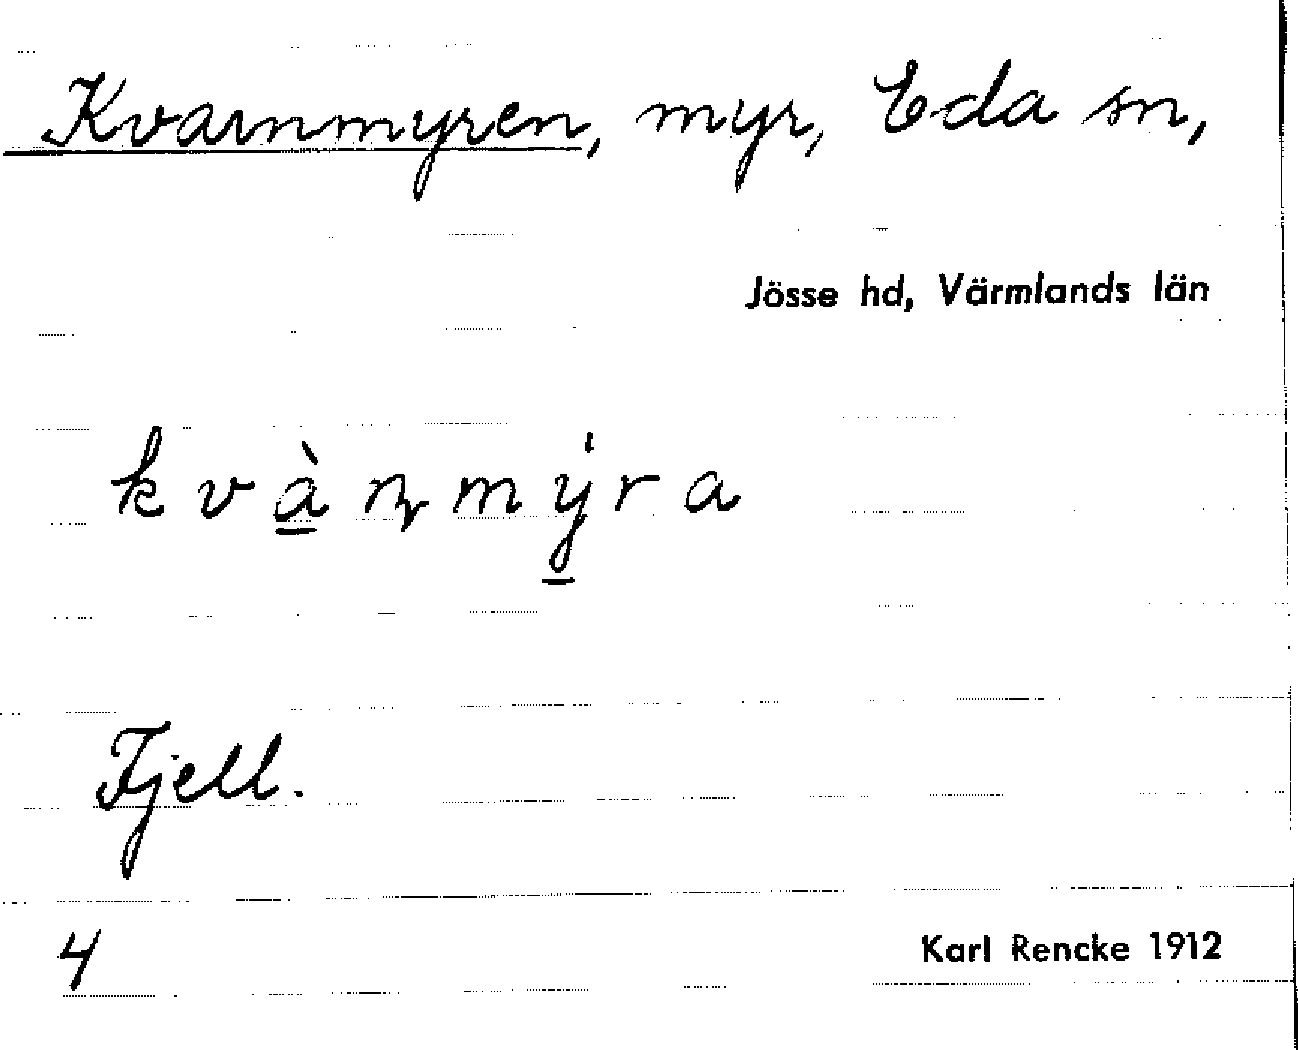 Kvarnmyren, myr, Eda sn,
Jösse hd, Värmlands län
kvà̱ɳmẏ̱ra
Fjell.
4
Karl Rencke 1912